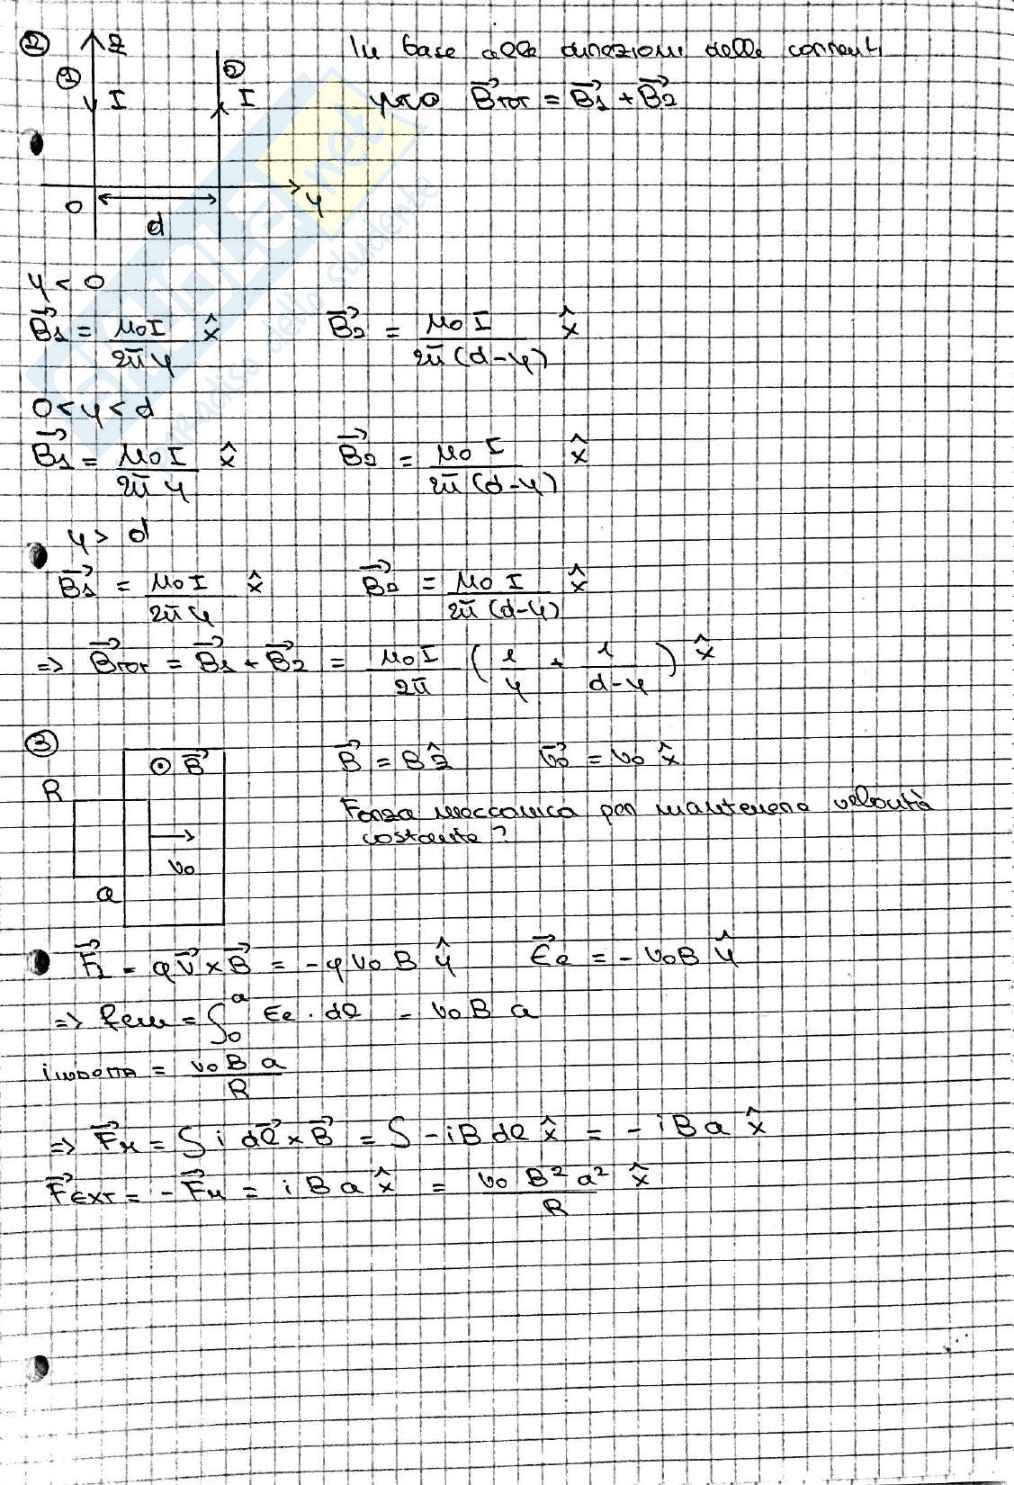 ② z In base alle direzioni delle correnti
① I ② I B⃗TOT = B⃗1 + B⃗2
O d y
y < 0
B⃗1 = μ0I / 2πy x̂ B⃗2 = μ0I / 2π(d-y) x̂
0 < y < d
B⃗1 = μ0I / 2πy x̂ B⃗2 = μ0I / 2π(d-y) x̂
y > d
B⃗1 = μ0I / 2πy x̂ B⃗2 = μ0I / 2π(d-y) x̂
=> B⃗TOT = B⃗1 + B⃗2 = μ0I / 2π (1/y + 1/(d-y)) x̂
③ ⊙ B⃗ B⃗ = Bẑ v⃗0 = v0 x̂
R Forza meccanica per mantenere velocità
costante?
v0
a
F⃗L = qv⃗ × B⃗ = -qv0B ŷ E⃗e = -v0B ŷ
=> fem = ∫₀ᵃ Ee · dl = v0Ba
iINDOTTA = v0Ba / R
=> F⃗M = ∫ i dl⃗ × B⃗ = ∫ -iB dl x̂ = -iBa x̂
F⃗EXT = -F⃗M = iBa x̂ = v0B²a² / R x̂
.net
dello studente